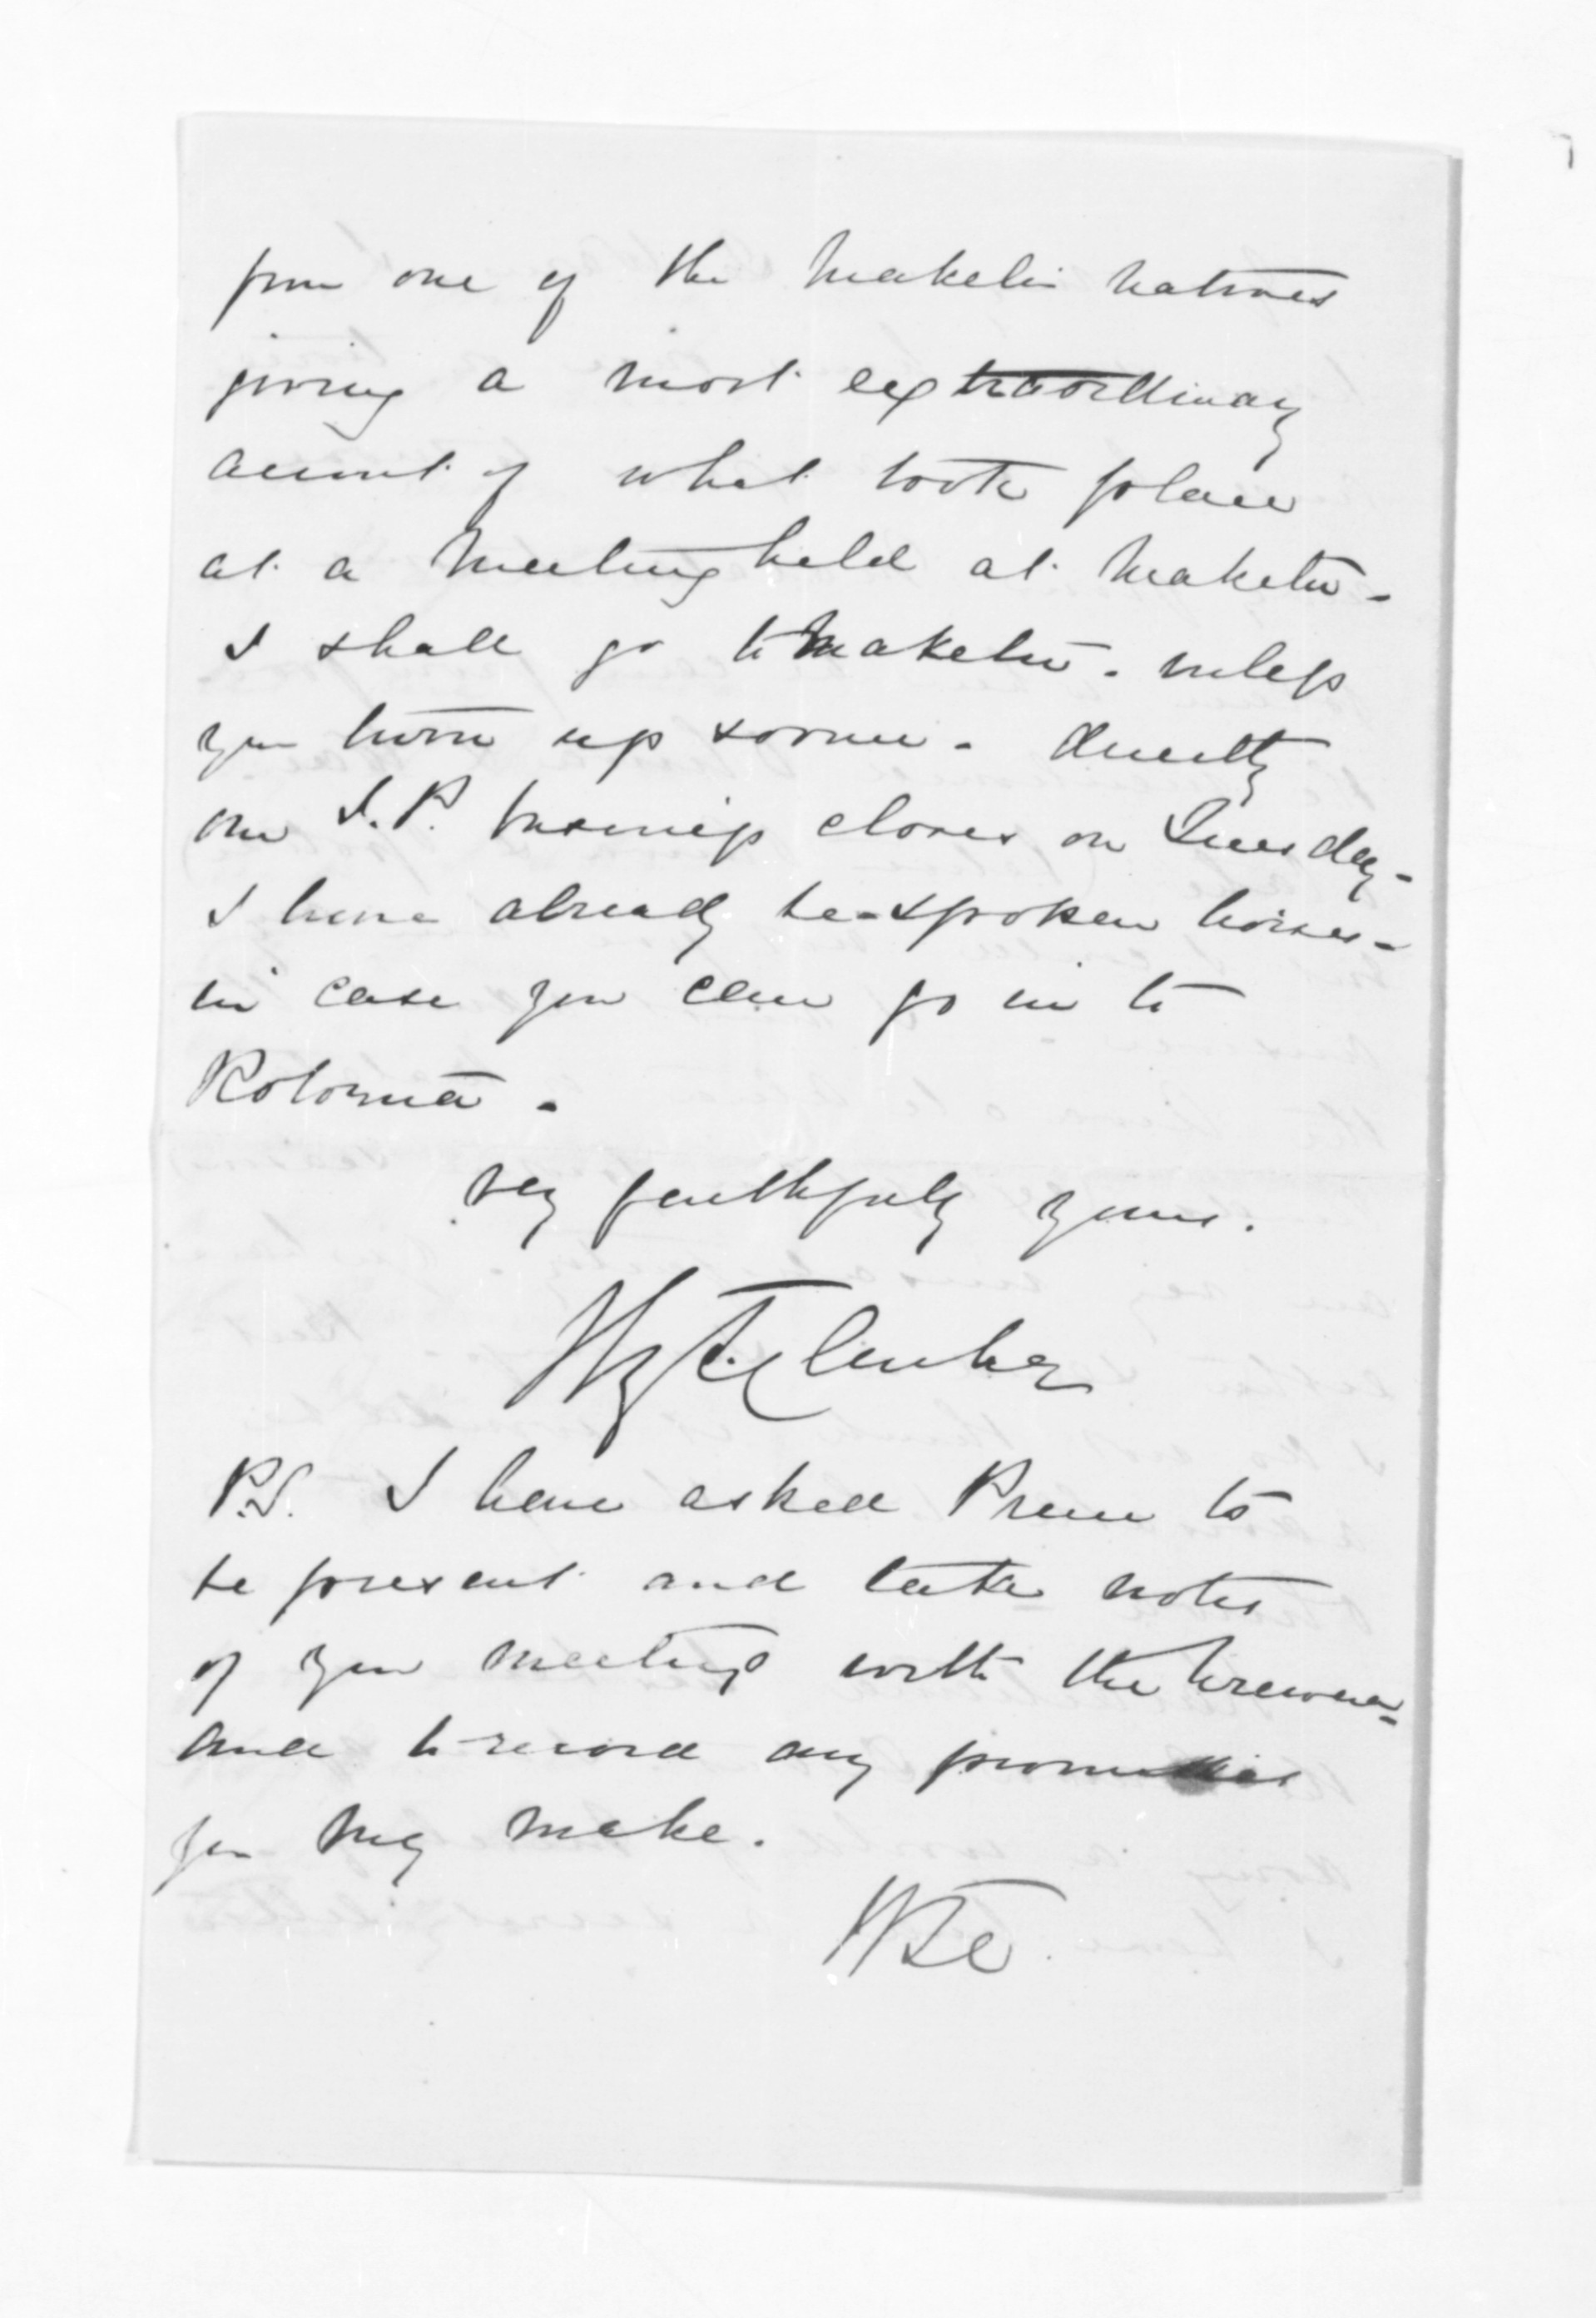 from one of the Maketu natives
giving a most extraordinary
account of what took place
at a meeting held at Maketu -
I shall go to Maketu - unless
you turn up sooner - directly
our I.P. business closes on Tuesday -
I have already be-spoken horses -
in case you can go in to
Rotorua -
Very faithfully yours.
H.T. Clarke
P.S. I have asked Preece to
be present and take notes
of your meeting with the Urewera -
and to record any promises
you may make.
HTC